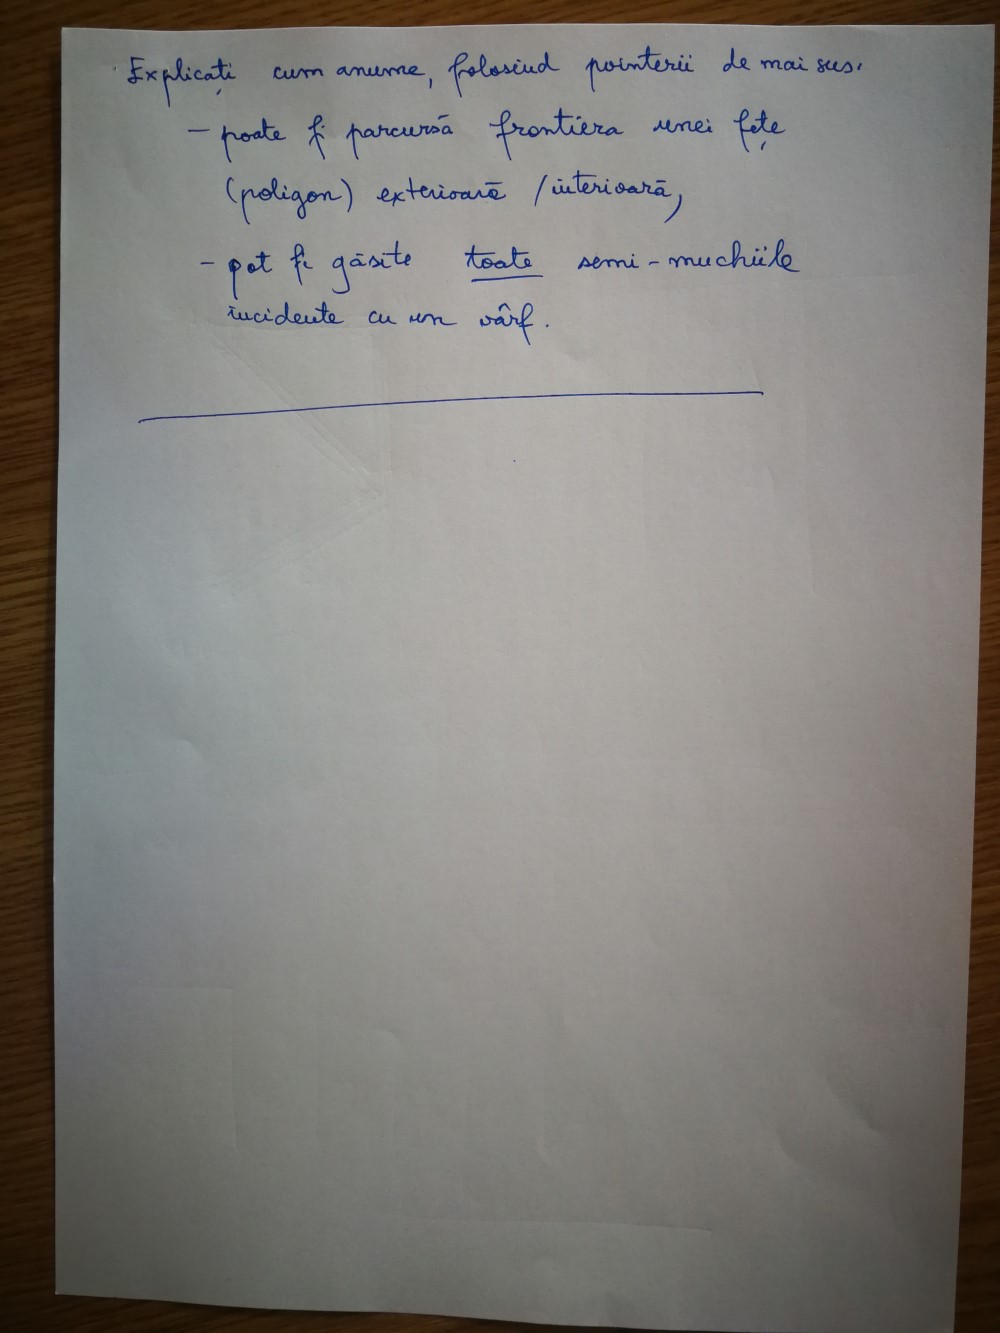 Explicați cum anume, folosind pointerii de mai sus.
- poate fi parcursă frontiera unei fețe
(poligon) exterioară / interioară,
- pot fi găsite toate semi-muchiile
incidente cu un vârf.